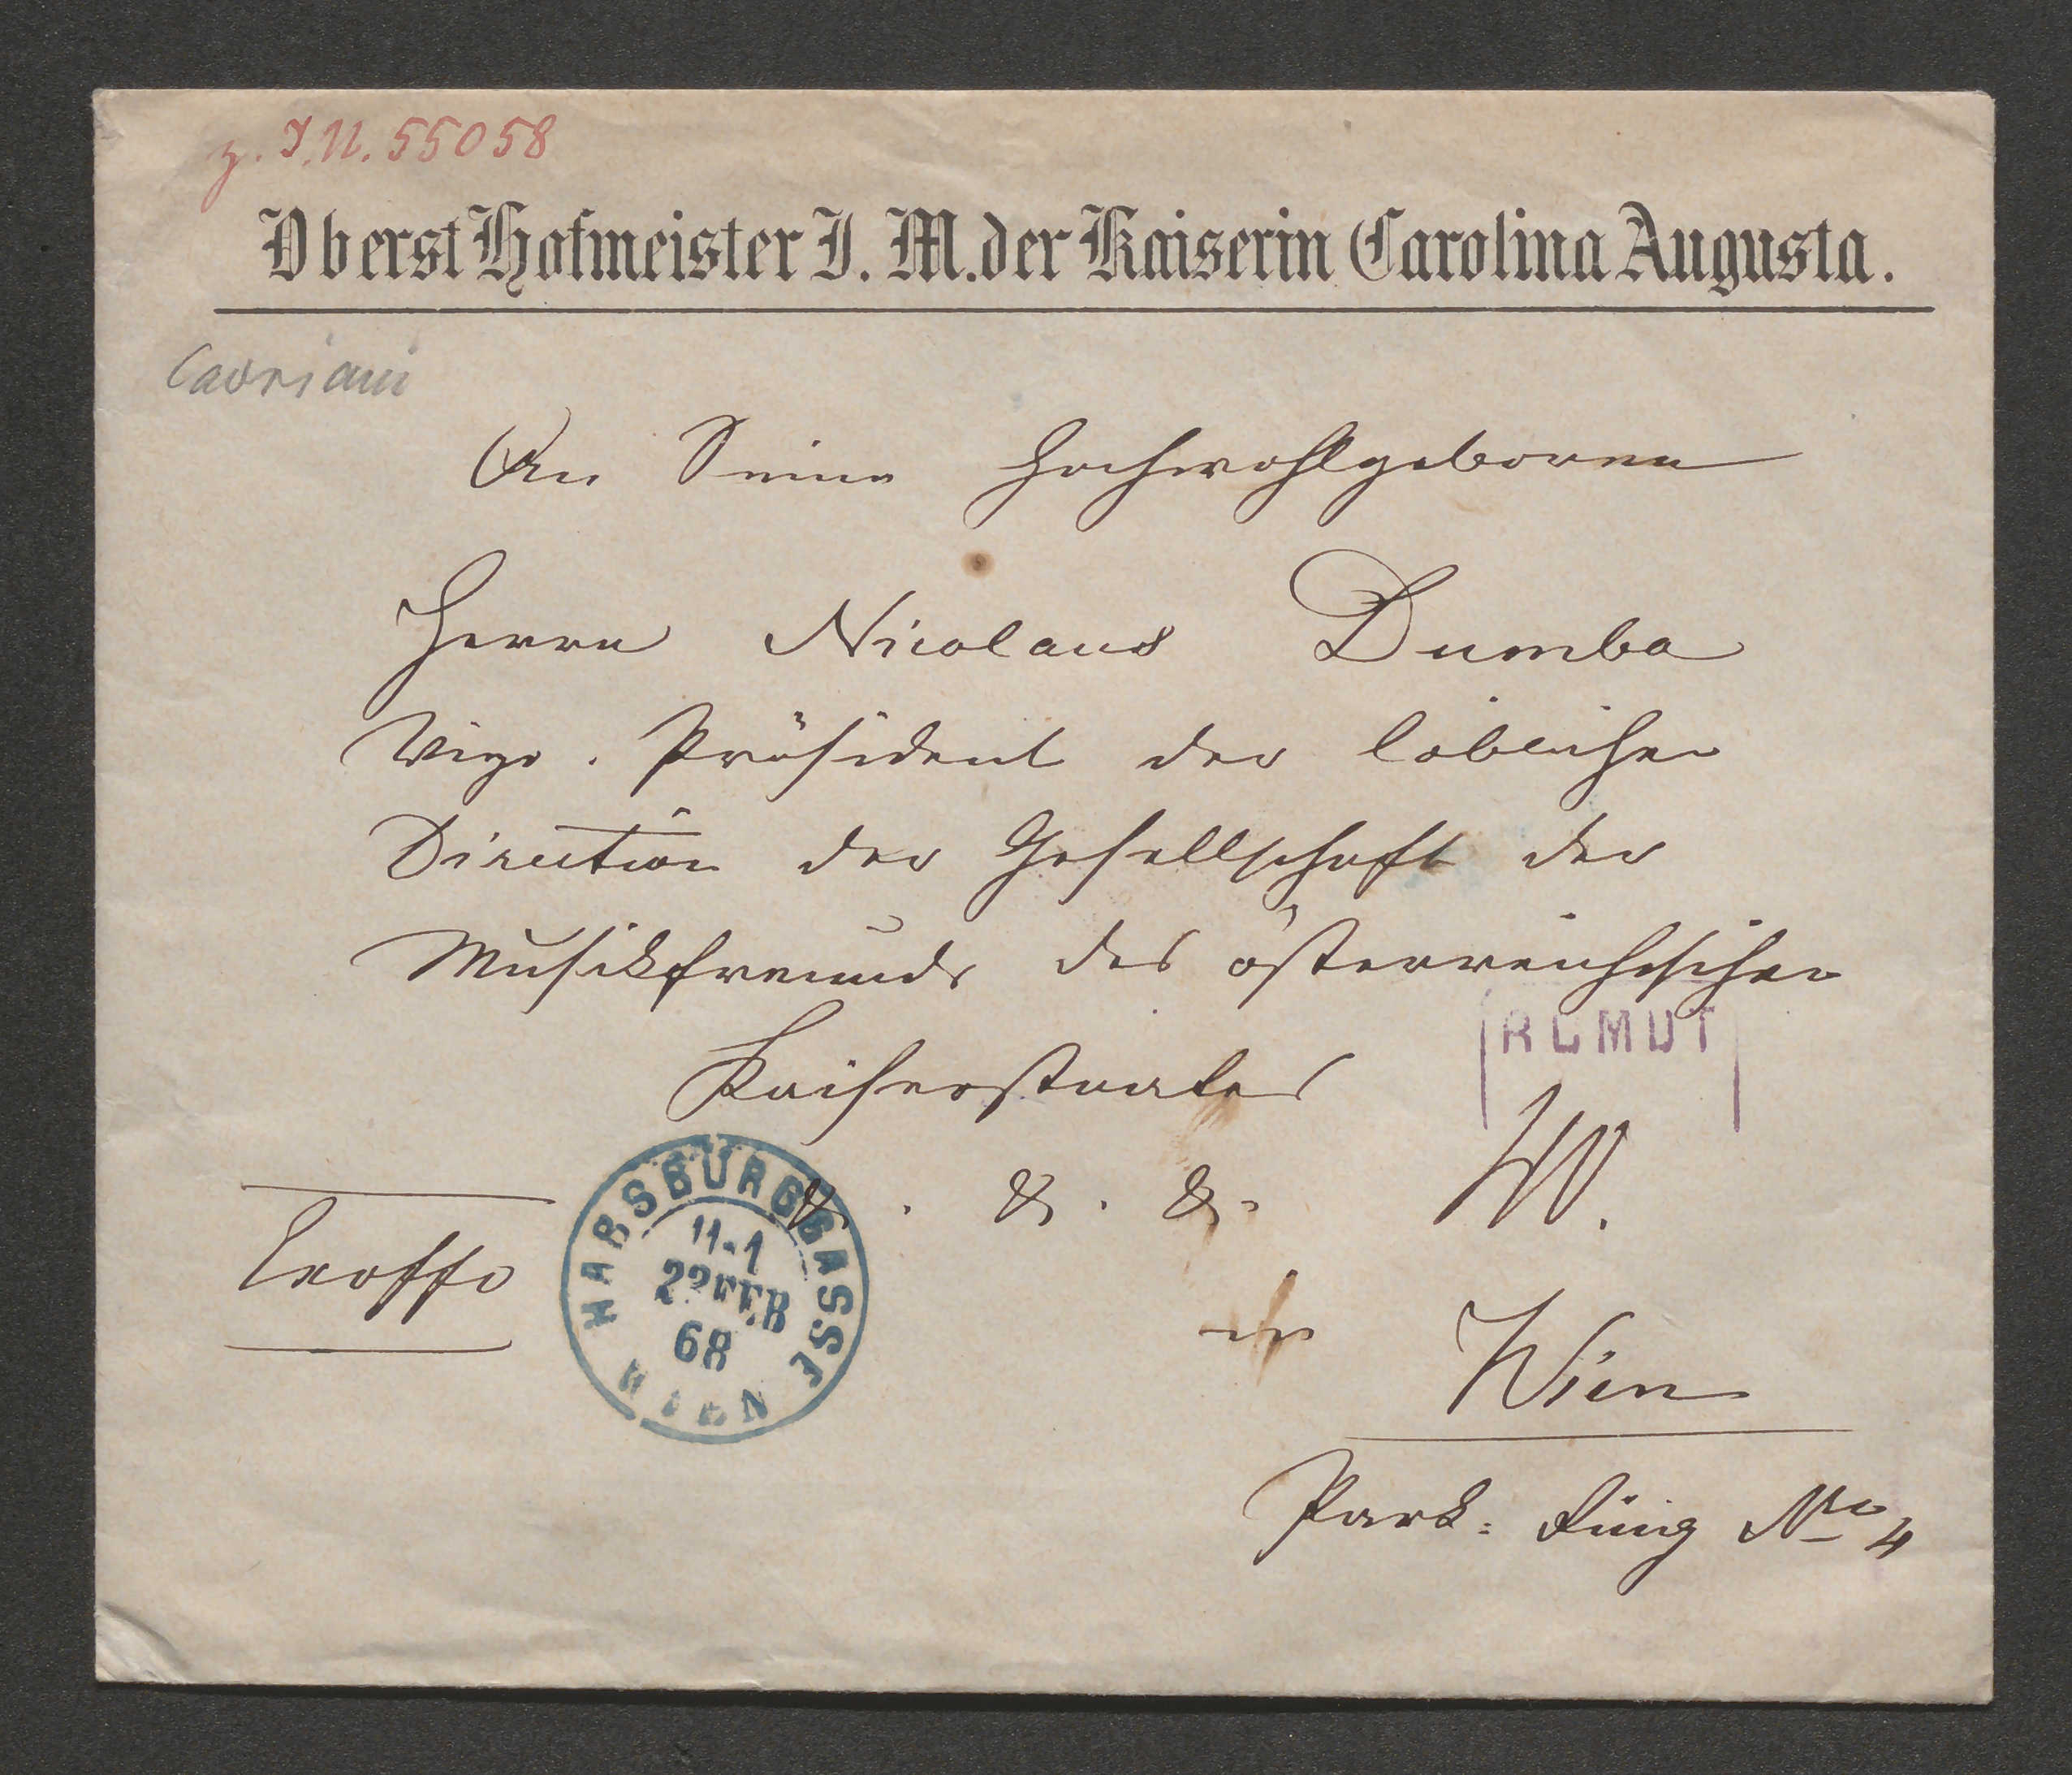 z. I.N. 55058
Oberst Hofmeister I. M. der Kaiserin Carolina Augusta.
Cavriani
An Seine Hochwohlgeboren
Herrn Nicolaus Dumba
Vize. Präsident der löblichen
Direction der Gesellschaft der
Musikfreunde des österreichischen
Kaiserstaates
&. &. &. W.
HABSBURGGASSE
11-1
22 FEB
68
WIEN
in Wien
Park: Ring No 4